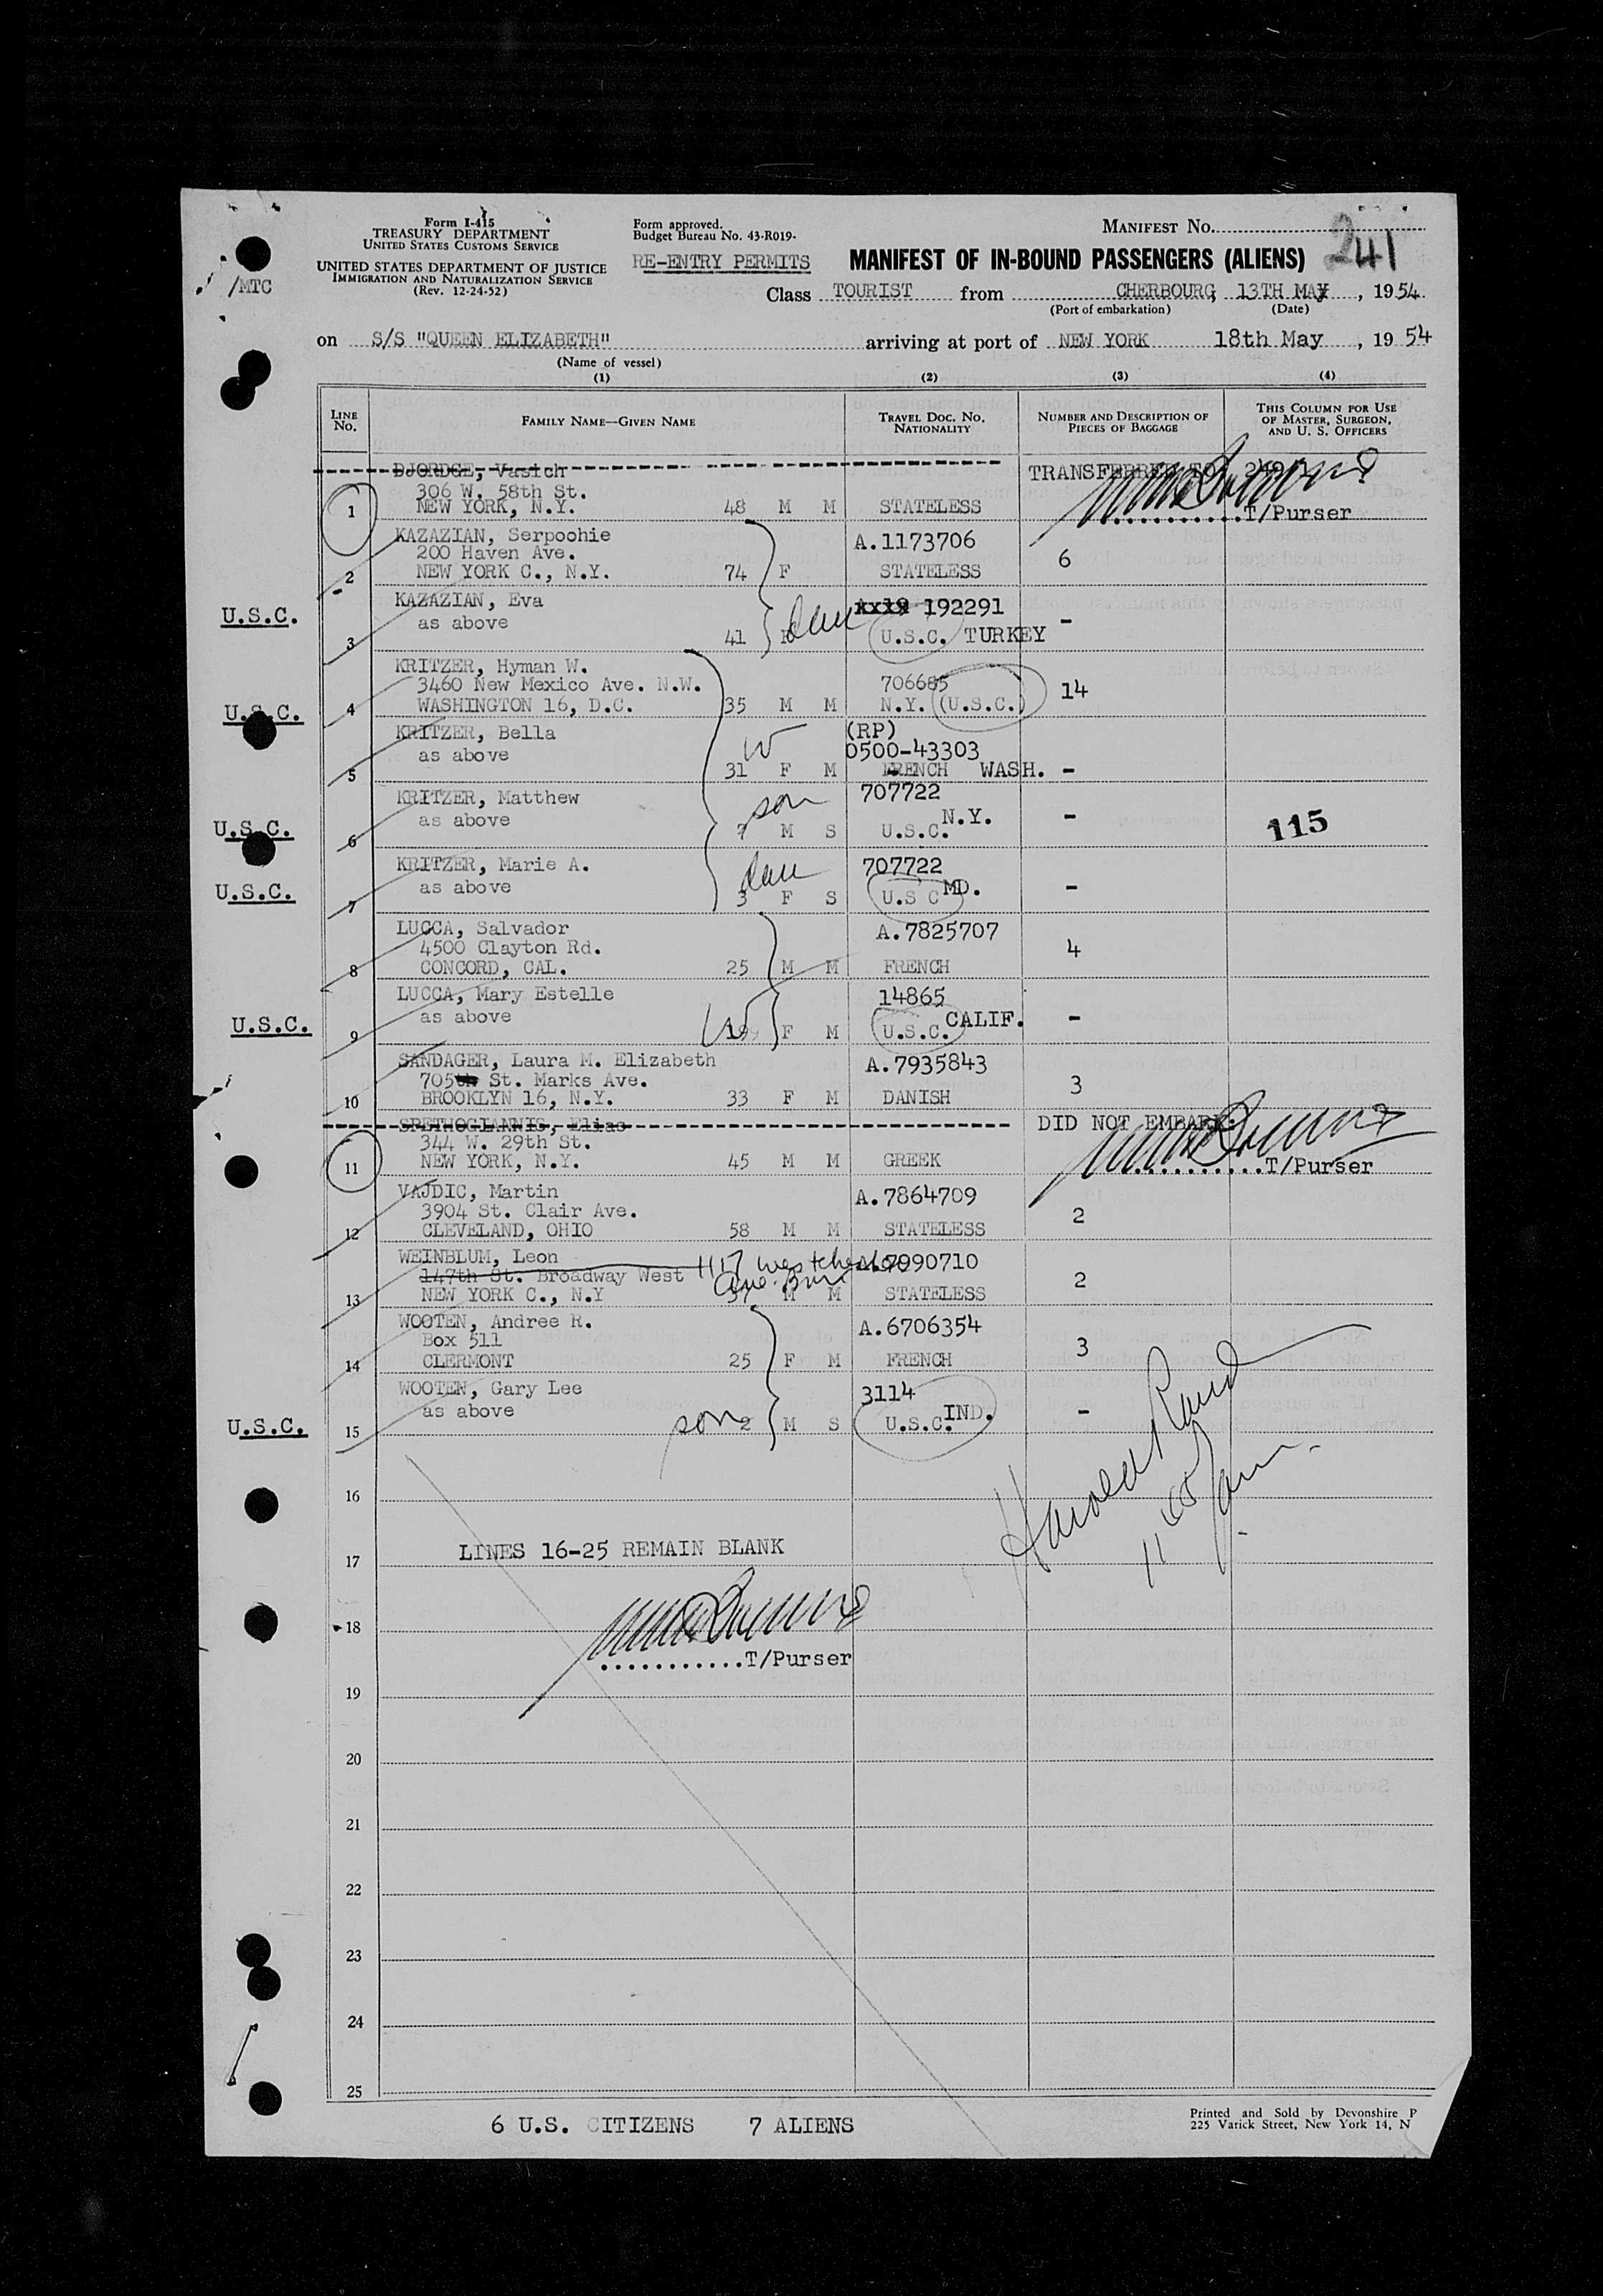 Form I-415
TREASURY DEPARTMENT
UNITED STATES CUSTOMS SERVICE
UNITED STATES DEPARTMENT OF JUSTICE
IMMIGRATION AND NATURALIZATION SERVICE
(Rev. 12-24-52)
/MTC
Form approved.
Budget Bureau No. 43-R019-
RE-ENTRY PERMITS
MANIFEST No. 241
MANIFEST OF IN-BOUND PASSENGERS (ALIENS)
Class TOURIST from CHERBOURG, 13TH MAY, 1954
(Port of embarkation) (Date)
on S/S "QUEEN ELIZABETH" arriving at port of NEW YORK 18th May, 1954
(Name of vessel)
(1) (2) (3) (4)
LINE No. FAMILY NAME—GIVEN NAME TRAVEL DOC. No. NATIONALITY NUMBER AND DESCRIPTION OF PIECES OF BAGGAGE THIS COLUMN FOR USE OF MASTER, SURGEON, AND U. S. OFFICERS
DJORDGE, Vasich TRANSFERRED TO
306 W. 58th St.
1 NEW YORK, N.Y. 48 M M STATELESS T/Purser
KAZAZIAN, Serpoohie A.1173706
200 Haven Ave. 6
2 NEW YORK C., N.Y. 74 F STATELESS
KAZAZIAN, Eva 192291
U.S.C. as above dau -
3 41 U.S.C. TURKEY
KRITZER, Hyman W.
3460 New Mexico Ave. N.W. 706685 14
U.S.C. 4 WASHINGTON 16, D.C. 35 M M N.Y. (U.S.C.)
KRITZER, Bella (RP)
as above W 0500-43303
5 31 F M FRENCH WASH. -
KRITZER, Matthew son 707722
U.S.C. as above N.Y. - 115
6 7 M S U.S.C.
KRITZER, Marie A. dau 707722
U.S.C. as above MD. -
7 3 F S U.S.C
LUCCA, Salvador A.7825707
4500 Clayton Rd. 4
8 CONCORD, CAL. 25 M M FRENCH
LUCCA, Mary Estelle 14865
U.S.C. as above W CALIF. -
9 19 F M U.S.C.
SANDAGER, Laura M. Elizabeth A.7935843
705 St. Marks Ave. 3
10 BROOKLYN 16, N.Y. 33 F M DANISH
SPETHOGIANNIS, Elias DID NOT EMBARK.
344 W. 29th St.
11 NEW YORK, N.Y. 45 M M GREEK T/Purser
VAJDIC, Martin A.7864709
3904 St. Clair Ave. 2
12 CLEVELAND, OHIO 58 M M STATELESS
WEINBLUM, Leon 1117 Westchester A.7990710
147th St. Broadway West Ave. 2
13 NEW YORK C., N.Y 37 M M STATELESS
WOOTEN, Andree R. A.6706354
Box 511 3
14 CLERMONT 25 F M FRENCH
WOOTEN, Gary Lee 3114
U.S.C. as above IND. -
15 son 2 M S U.S.C.
16
Harold Rand
17 LINES 16-25 REMAIN BLANK
18
T/Purser
19
20
21
22
23
24
25
6 U.S. CITIZENS 7 ALIENS
Printed and Sold by Devonshire P
225 Varick Street, New York 14, N